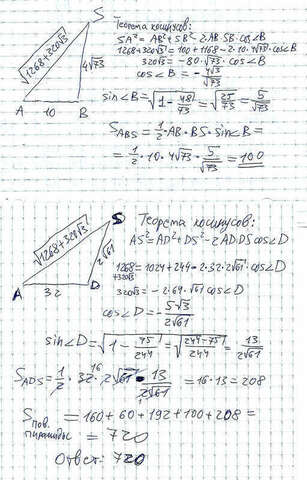 Теорема косинусов:
SA² = AB² + SB² - 2·AB·SB·cos∠B
1268+320√3 = 100+1168-2·10·4√73·cosB
320√3 = -80·√73·cos∠B
cos∠B = -4√3/√73
sin∠B = √(1-48/73) = √(25/73) = 5/√73
S_ABS = 1/2·AB·BS·sin∠B =
= 1/2·10·4√73·5/√73 = 100
S
√(1268+320√3)
4√73
A 10 B
Теорема косинусов:
AS² = AD²+DS²-2AD·DS cos∠D
1268+320√3 = 1024+244-2·32·2√61·cos∠D
320√3 = -2·64·√61 cos∠D
cos∠D = -5√3/2√61
S
√(1268+320√3)
2√61
A 32 D
sin∠D = √(1-75/244) = √((244-75)/244) = 13/2√61
S_ADS = 1/2·32·2√61·13/2√61 = 16·13 = 208
S пов. пирамиды = 160+60+192+100+208 =
= 720
Ответ: 720